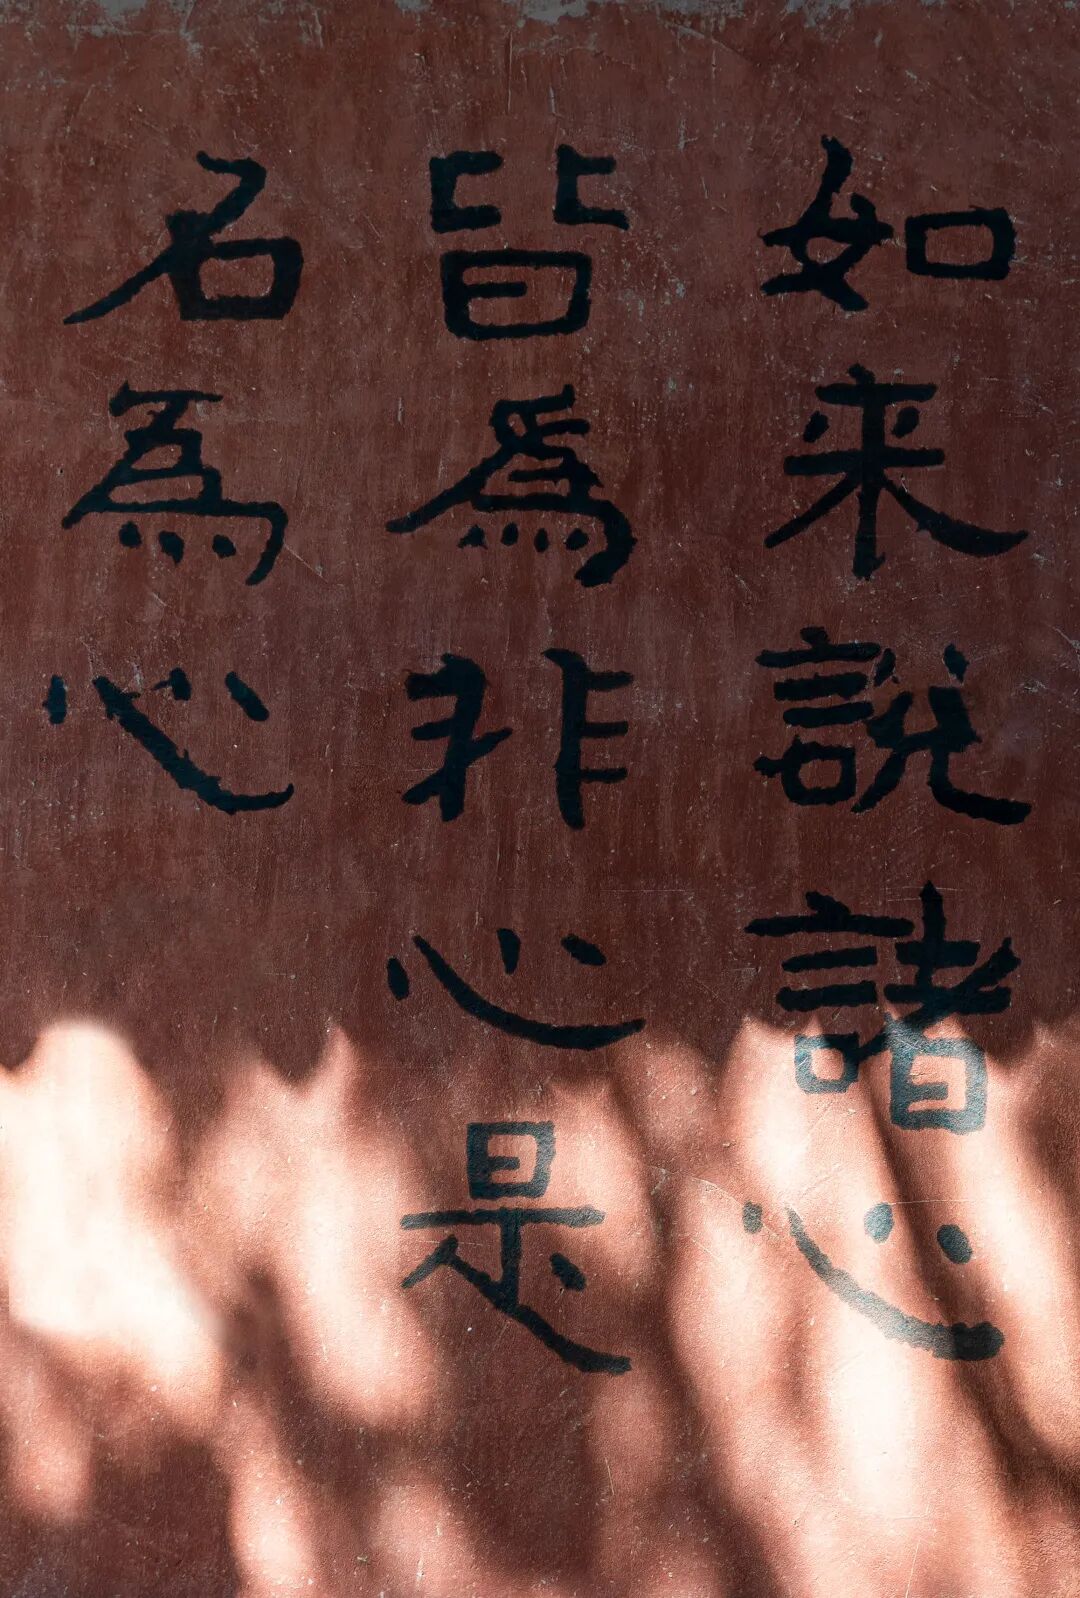 如来說諸心
皆爲非心是
名為心